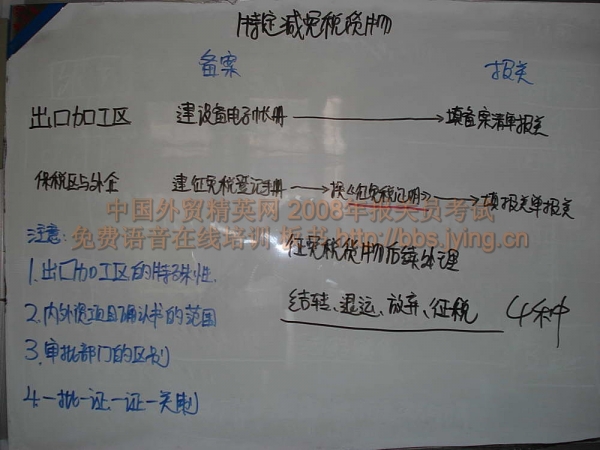 特定减免税货物
备案 报关
出口加工区 建设备电子帐册 → 填备案清单报关
保税区与外企 建征免税登记手册 → 换《征免税证明》 → 填报关单报关
中国外贸精英网 2008年报关员考试
免费语音在线培训 板书 http://bbs.jying.cn
注意:
征免税货物后续处理
1.出口加工区的特殊性.
结转、退运、放弃、征税 4种
2.内外资项目确认书的范围
3.审批部门的区别
4.一批一证一证一关制